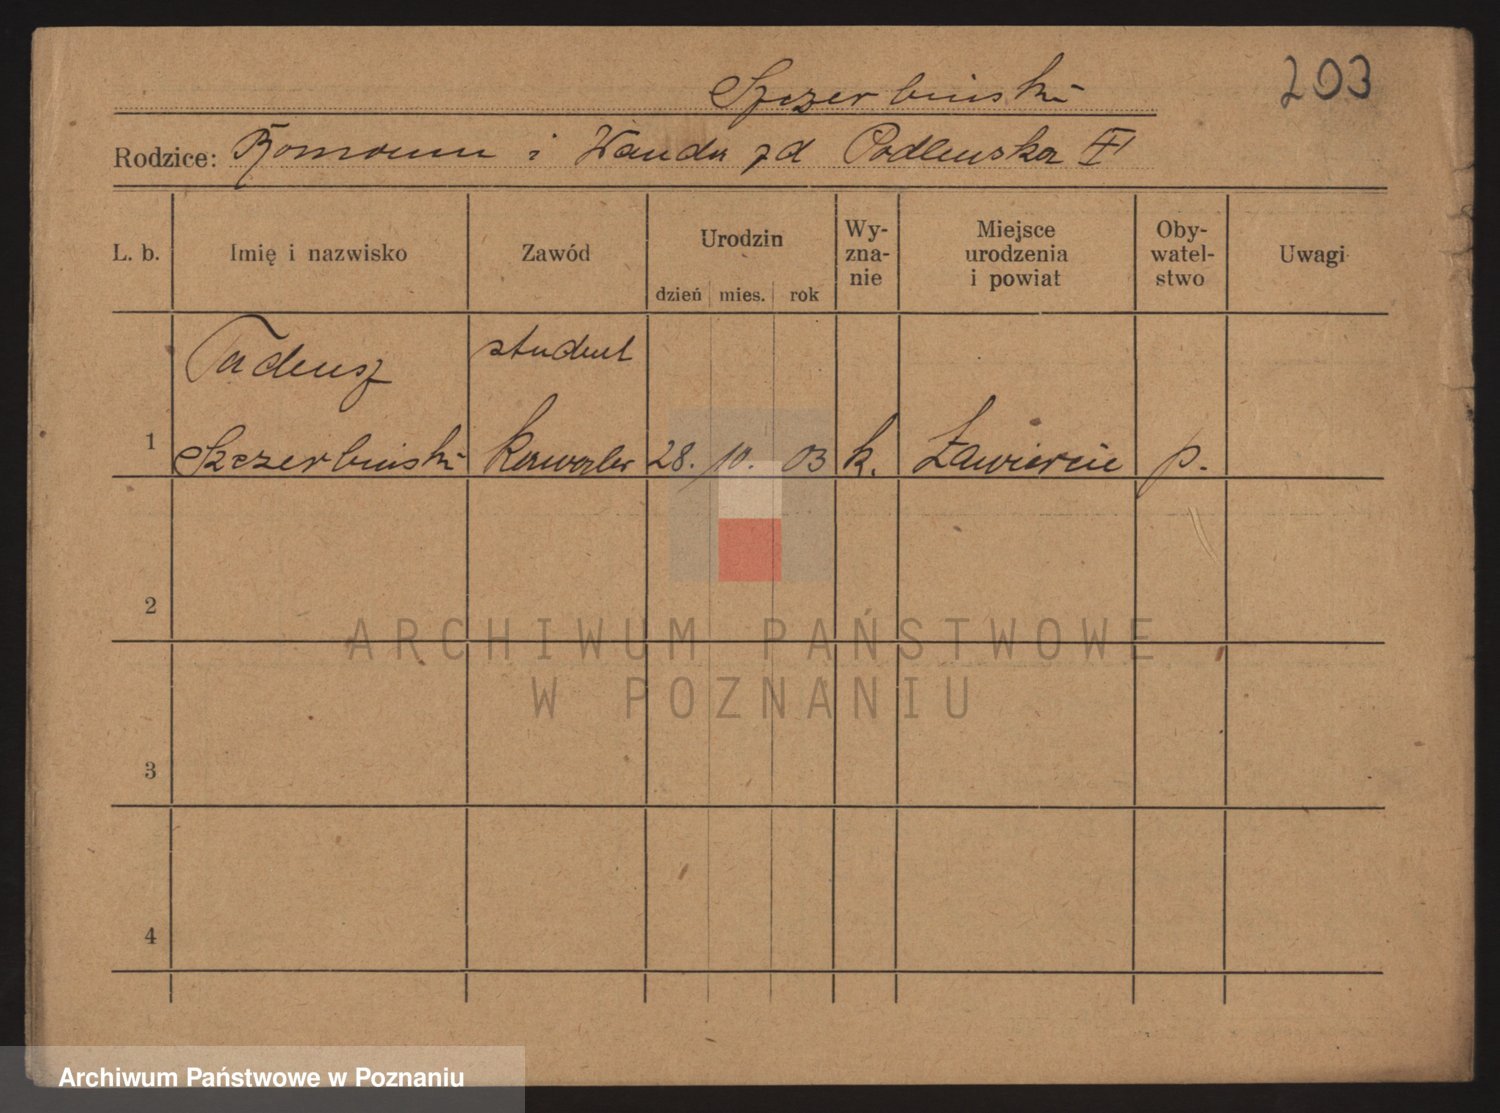 203
Szczerbiński
Rodzice: Roman i Wanda zd Podlewska
L. b. Imię i nazwisko Zawód Urodzin Wy- Miejsce Oby- Uwagi
zna- urodzenia watel-
nie i powiat stwo
dzień mies. rok
Tadeusz student
1 Szczerbiński kawaler 28. 10. 03 k. Zawiercie p.
2
ARCHIWUM PAŃSTWOWE
W POZNANIU
3
4
Archiwum Państwowe w Poznaniu